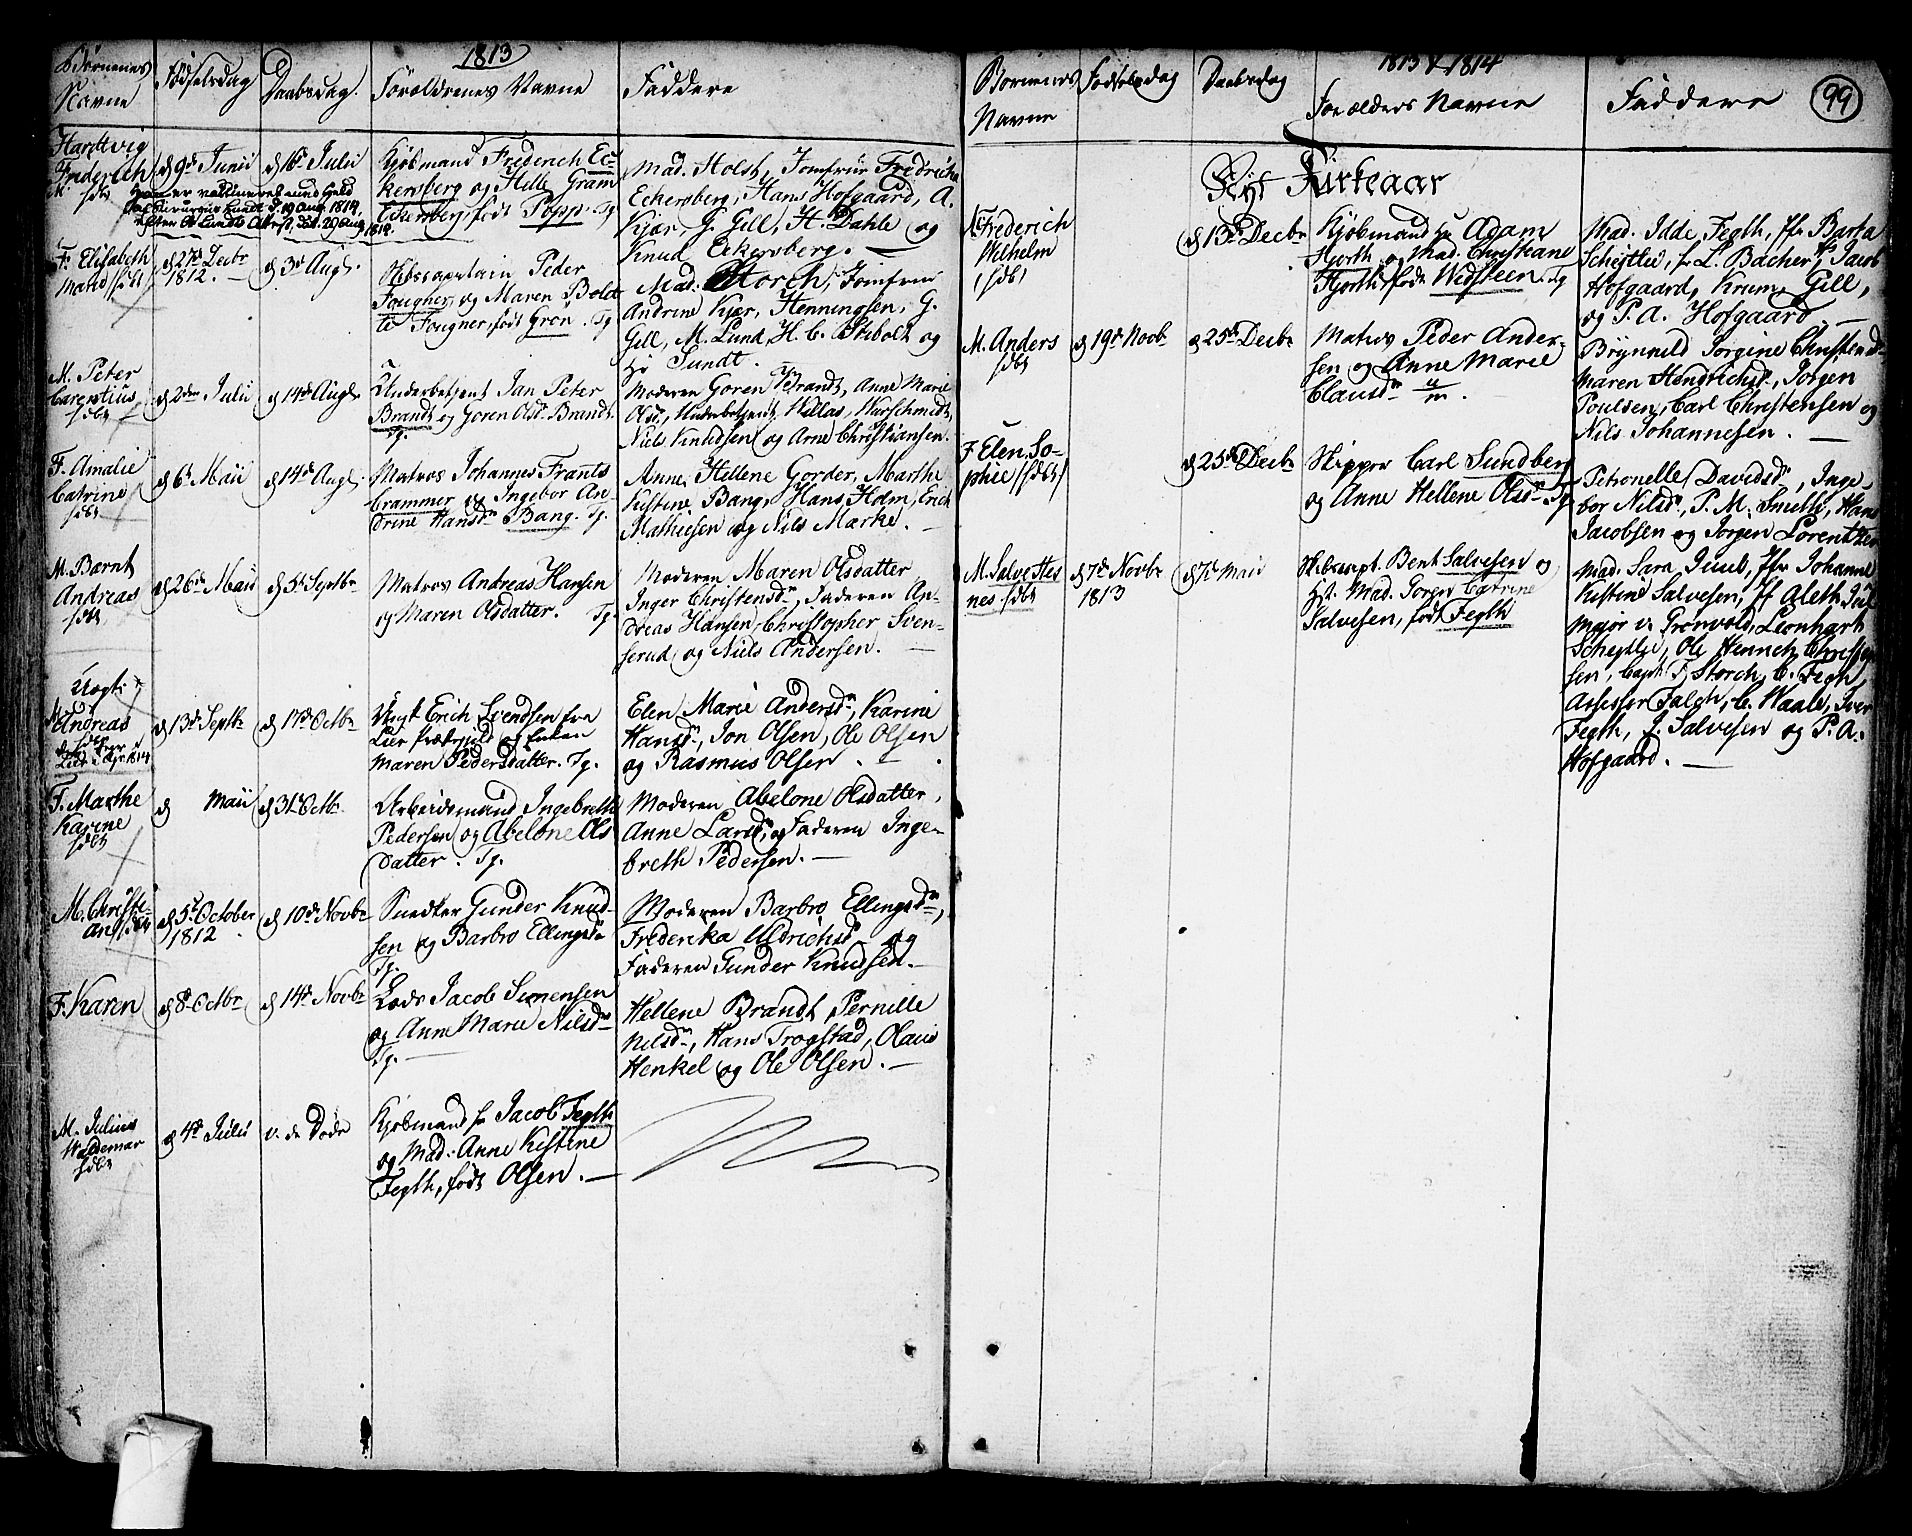 1813
Børnenes Navne
Fødselsdag
Daabsdag.
Forældrenes Navne
Faddere
Hardtvig
Friderich
M
d 9de Junii
d 16de Julii
Kjøbmand Frederich Ec-
kersberg og Helle Gram
Eckersberg, født Popp. Tg.
Mad. Holst, Jomfrue Fredricka
Eckersberg, Hans Hofgaard, A.
Kjær, J. Gill, H. Dahle og
Knud Eckersberg. —
er vaccineret med
d. 19 Aug 1814,
F. Elisabeth
d 27de Decbr
1812. —
d 3de Augl.
Peder
Fougner, og Maren Bold
te Fougner, født Grøn. Tg.
Mad. Storch, Jomfrue
Andrine Kjær, Henningsen, G.
Gill, M. Lund, H. C. Stibolt og
Hr Sundt.
M. Peter
Carentius
d 2den Julii
d 14de Augl.
Underbetjent Jan Peter
Brandt og Goren Olsdr Brandt.
Tg.
Moderen Goren Brandt, Anne Marie
Olsdr, Underbetjent Willas, Warschmidt,
Niels Knudsen og Arne Christiansen.
F. Amalie
Catrine
d 6te Maii
d 14de Augl.
Matros Johannes Frants
Crammer og Ingebor An-
drine Hansdr Bang. Tg.
Anne Hellene Gorder, Marthe
Kistine Bang, Hans Holm, Erich
Mathiesen og Nils Marke. —
M. Barnt
Andreas
d 26de Maii
d 5te Septbr
Matros Andreas Hansen
og Maren Olsdatter. Tg.
Moderen Maren Olsdatter
Inger Christensdr, Faderen An-
dreas Hansen, Christopher Sven-
serud og Niels Andersen. —
Uægt.
M.
Andreas
d 13de Septbr
d 17de Octbr
Ungk. Erich Svendsen fra
Lier Præstegield og Enken
Maren Pedersdatter. Tg.
Elen Marie Andersdr, Karine
Hansdr, Jon Olsen, Ole Olsen
og Rasmus Olsen. —
F. Marthe
Karine
d Maii
d 31te Octbr.
Arbeidsmand Ingebreth
Pedersen og Abelone Ols
datter. Tg.
Moderen Abelone Olsdatter,
Anne Larsdr, og Faderen Inge-
breth Pedersen. —
M. Christi-
an
d 5te October
1812
d 10de Novbr
Snedker Gunder Knud-
sen og Barbro Ellingsdr
Tg.
Moderen Barbro Ellingsdr,
Frederika Uldrichsdr og
Faderen Gunder Knudsen. —
F. Karen
d 8de Octbr
d 14de Novbr
Lods Jacob Simensen
og Anne Marie Nilsdr
Tg. —
Hellene Brandt, Pernille
Nilsdr, Hans Trogstad, Olaus
Henkel og Ole Olsen. —
M. Julius
Waldemar
d 4de Julii
v. de Døde
Kjøbmand hr Jacob Fegth
og Mad. Anne Kistine
Fegth, født Olsen. —
1813 & 1814
Børnenes
Navne
Fødselsdag
Daabsdag
Forælders Navne
Faddere
99
Nyt Kirkeaar
M. Frederich
Wilhelm
d 13de Decbr
Kjøbmand hr Adam
Hjorth og Mad. Christiane
Hjorth, født Widsteen. Tg
Mad. Idde Fegth, Jfr Barta
Scheitlie, fr L. Bacher, hr Jacob
Hofgaard, Krum, Gill,
og P. A. Hofgaard. —
M. Anders
d 19de Novbr
d 25de Decbr
Matros Peder Ander-
sen og Anne Marie
Clausdr
Brynnild Jorgine Christensdr
Maren Hendrichsdr, Jørgen
Poulsen, Carl Christensen og
Nils Johannesen. —
F Elen So-
phie
d 25de Decbr
Skipper Carl Sundberg
og Anne Hellene Olsdr. Tg
Petronelle Davidsdr, Inge-
bor Nilsdr, P. M. Smith, Hans
Jacobsen og Jørgen Lorentzen
M. Salve Hes
nes
d 7de Novbr
1813
d 7de Maii
Skibscapt. Bent Salvesen og
Hst. Mad. Jorgen Catrine
Salvesen, født Fegth
Mad. Sara Juul, Jfr Johanne
Kistine Salvesen, Jf Aleth Juul
Major v. Grønvold, Leonhart
Scheitlie, Ole Hennech Christ
sen, Capt. T. Storch, C. Fegth,
Assessor Falch, C. Waale, Iver
Fegth, J. Salvesen og P. A.
Hofgaard. —